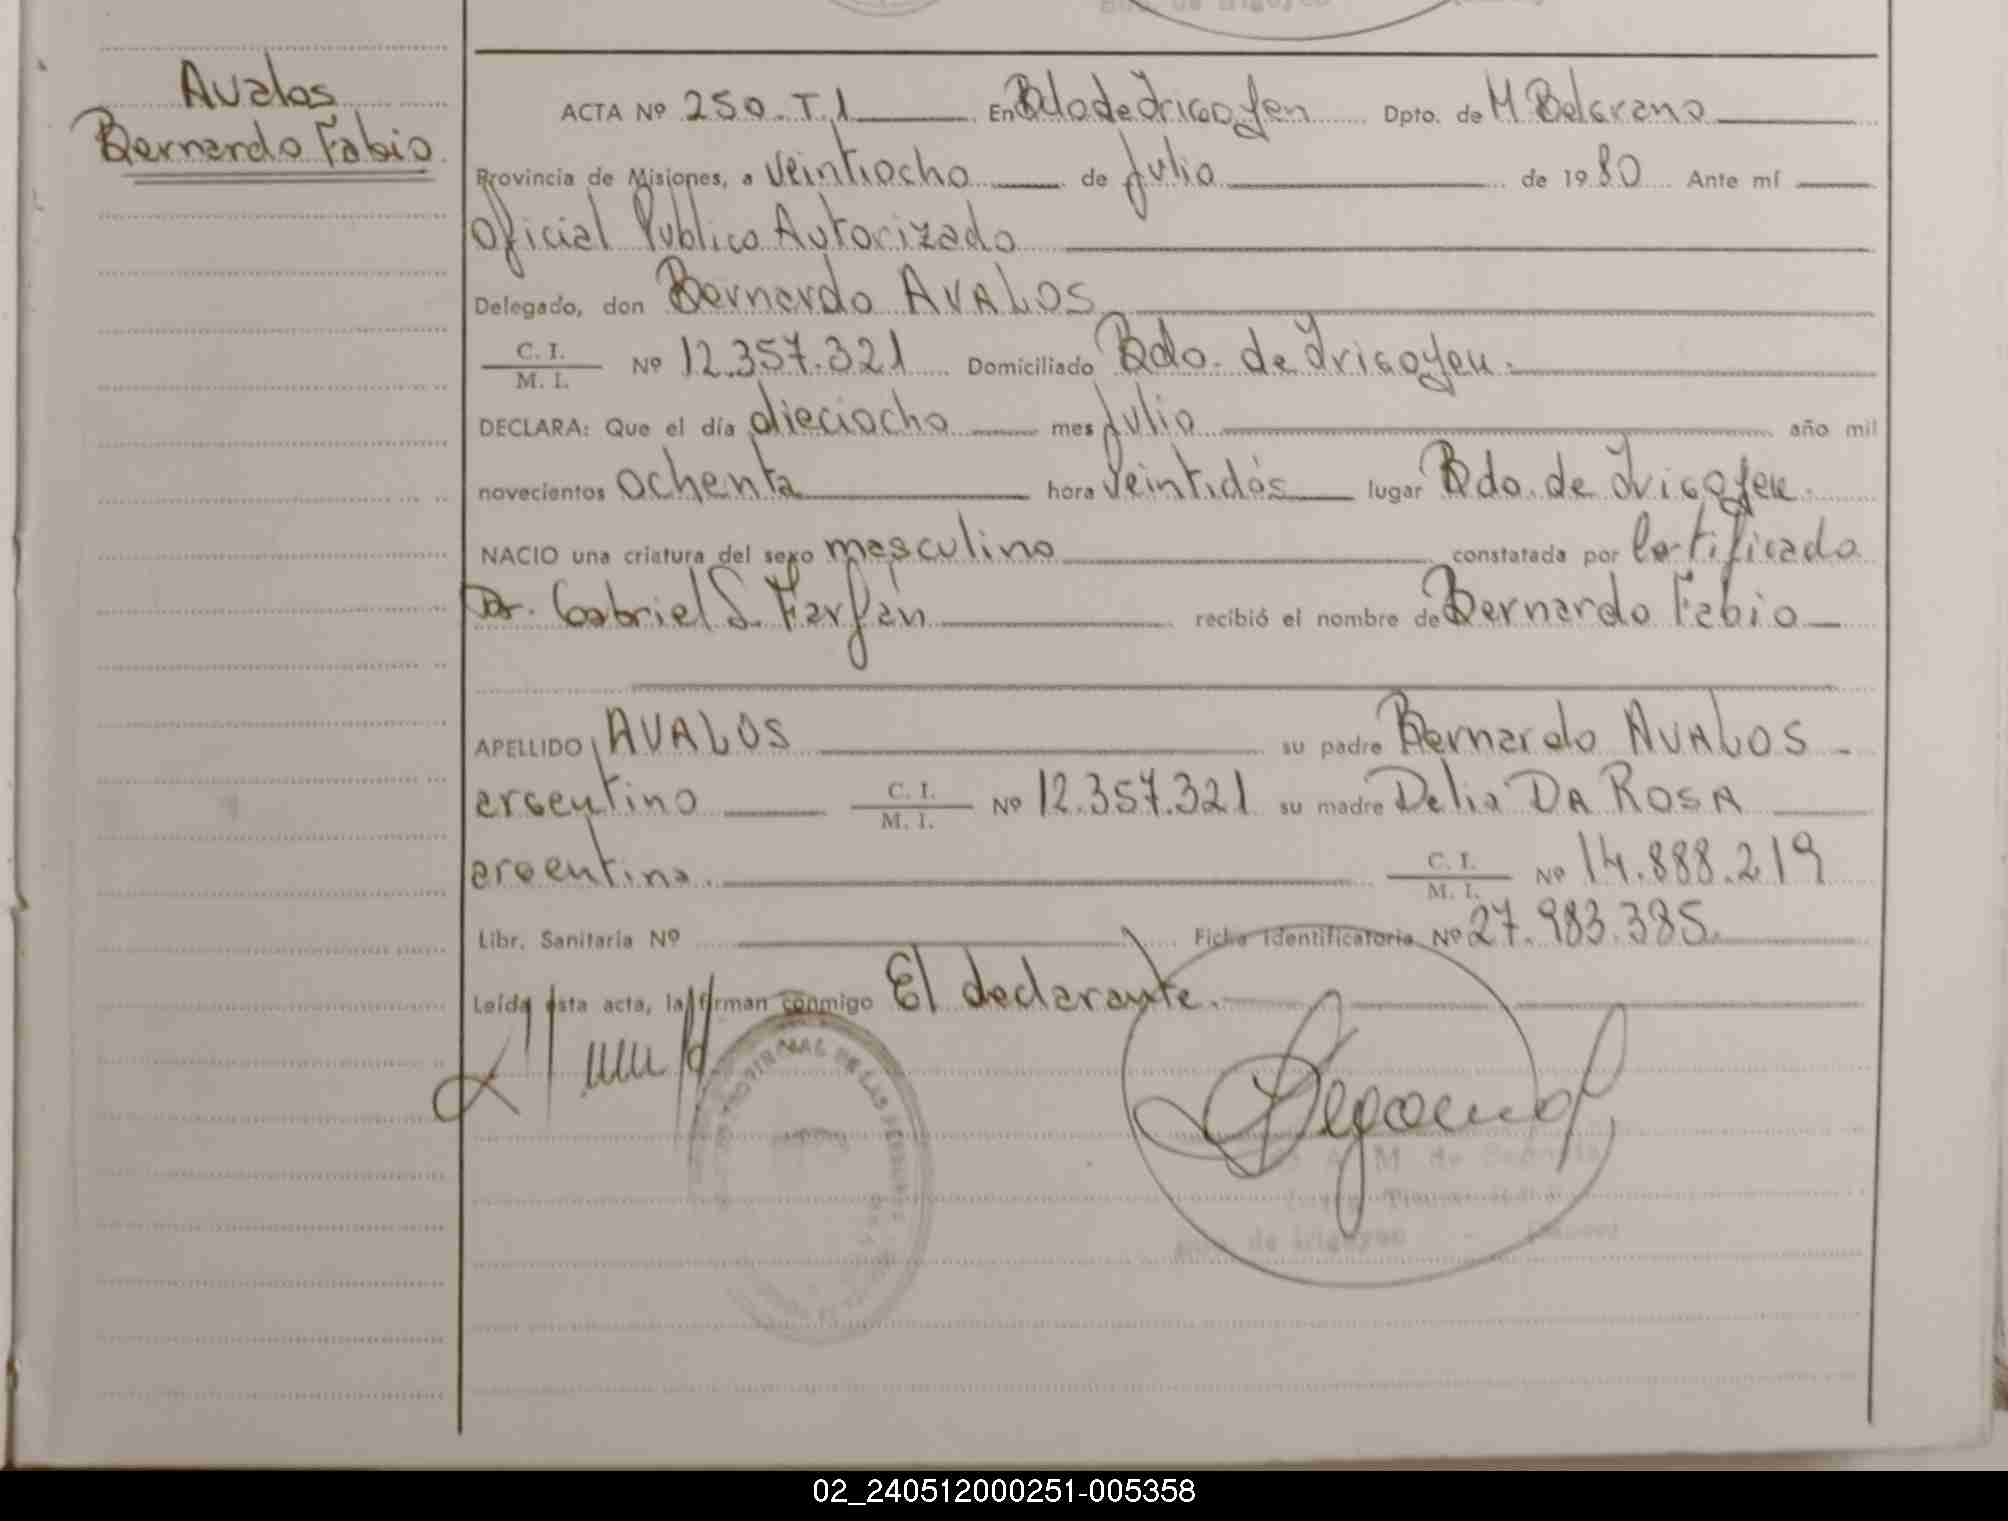 Avalos
Bernardo Fabio
ACTA Nº 250. T.1 En Bdo de Irigoyen Dpto. de M Belgrano
Provincia de Misiones, a veintiocho de Julio de 1980 Ante mí
Oficial Público Autorizado
Delegado, don Bernardo AVALOS
C. I.
M. I. Nº 12.357.321 Domiciliado Bdo. de Irigoyen.
DECLARA: Que el día dieciocho mes Julio año mil
novecientos ochenta hora veintidós lugar Bdo. de Irigoyen.
NACIO una criatura del sexo masculino constatada por Certificado
Dr. Gabriel S. Farfán recibió el nombre de Bernardo Fabio
APELLIDO AVALOS su padre Bernardo AVALOS
argentino C. I.
M. I. Nº 12.357.321 su madre Delia DA ROSA
argentina. C. I.
M. I. Nº 14.888.219
Libr. Sanitaria Nº Ficha Identificatoria Nº 27.983.385.
Leída esta acta, la firman conmigo El declarante.
PROVINCIAL DE LAS PERSONAS
de Irigoyen
02_240512000251-005358